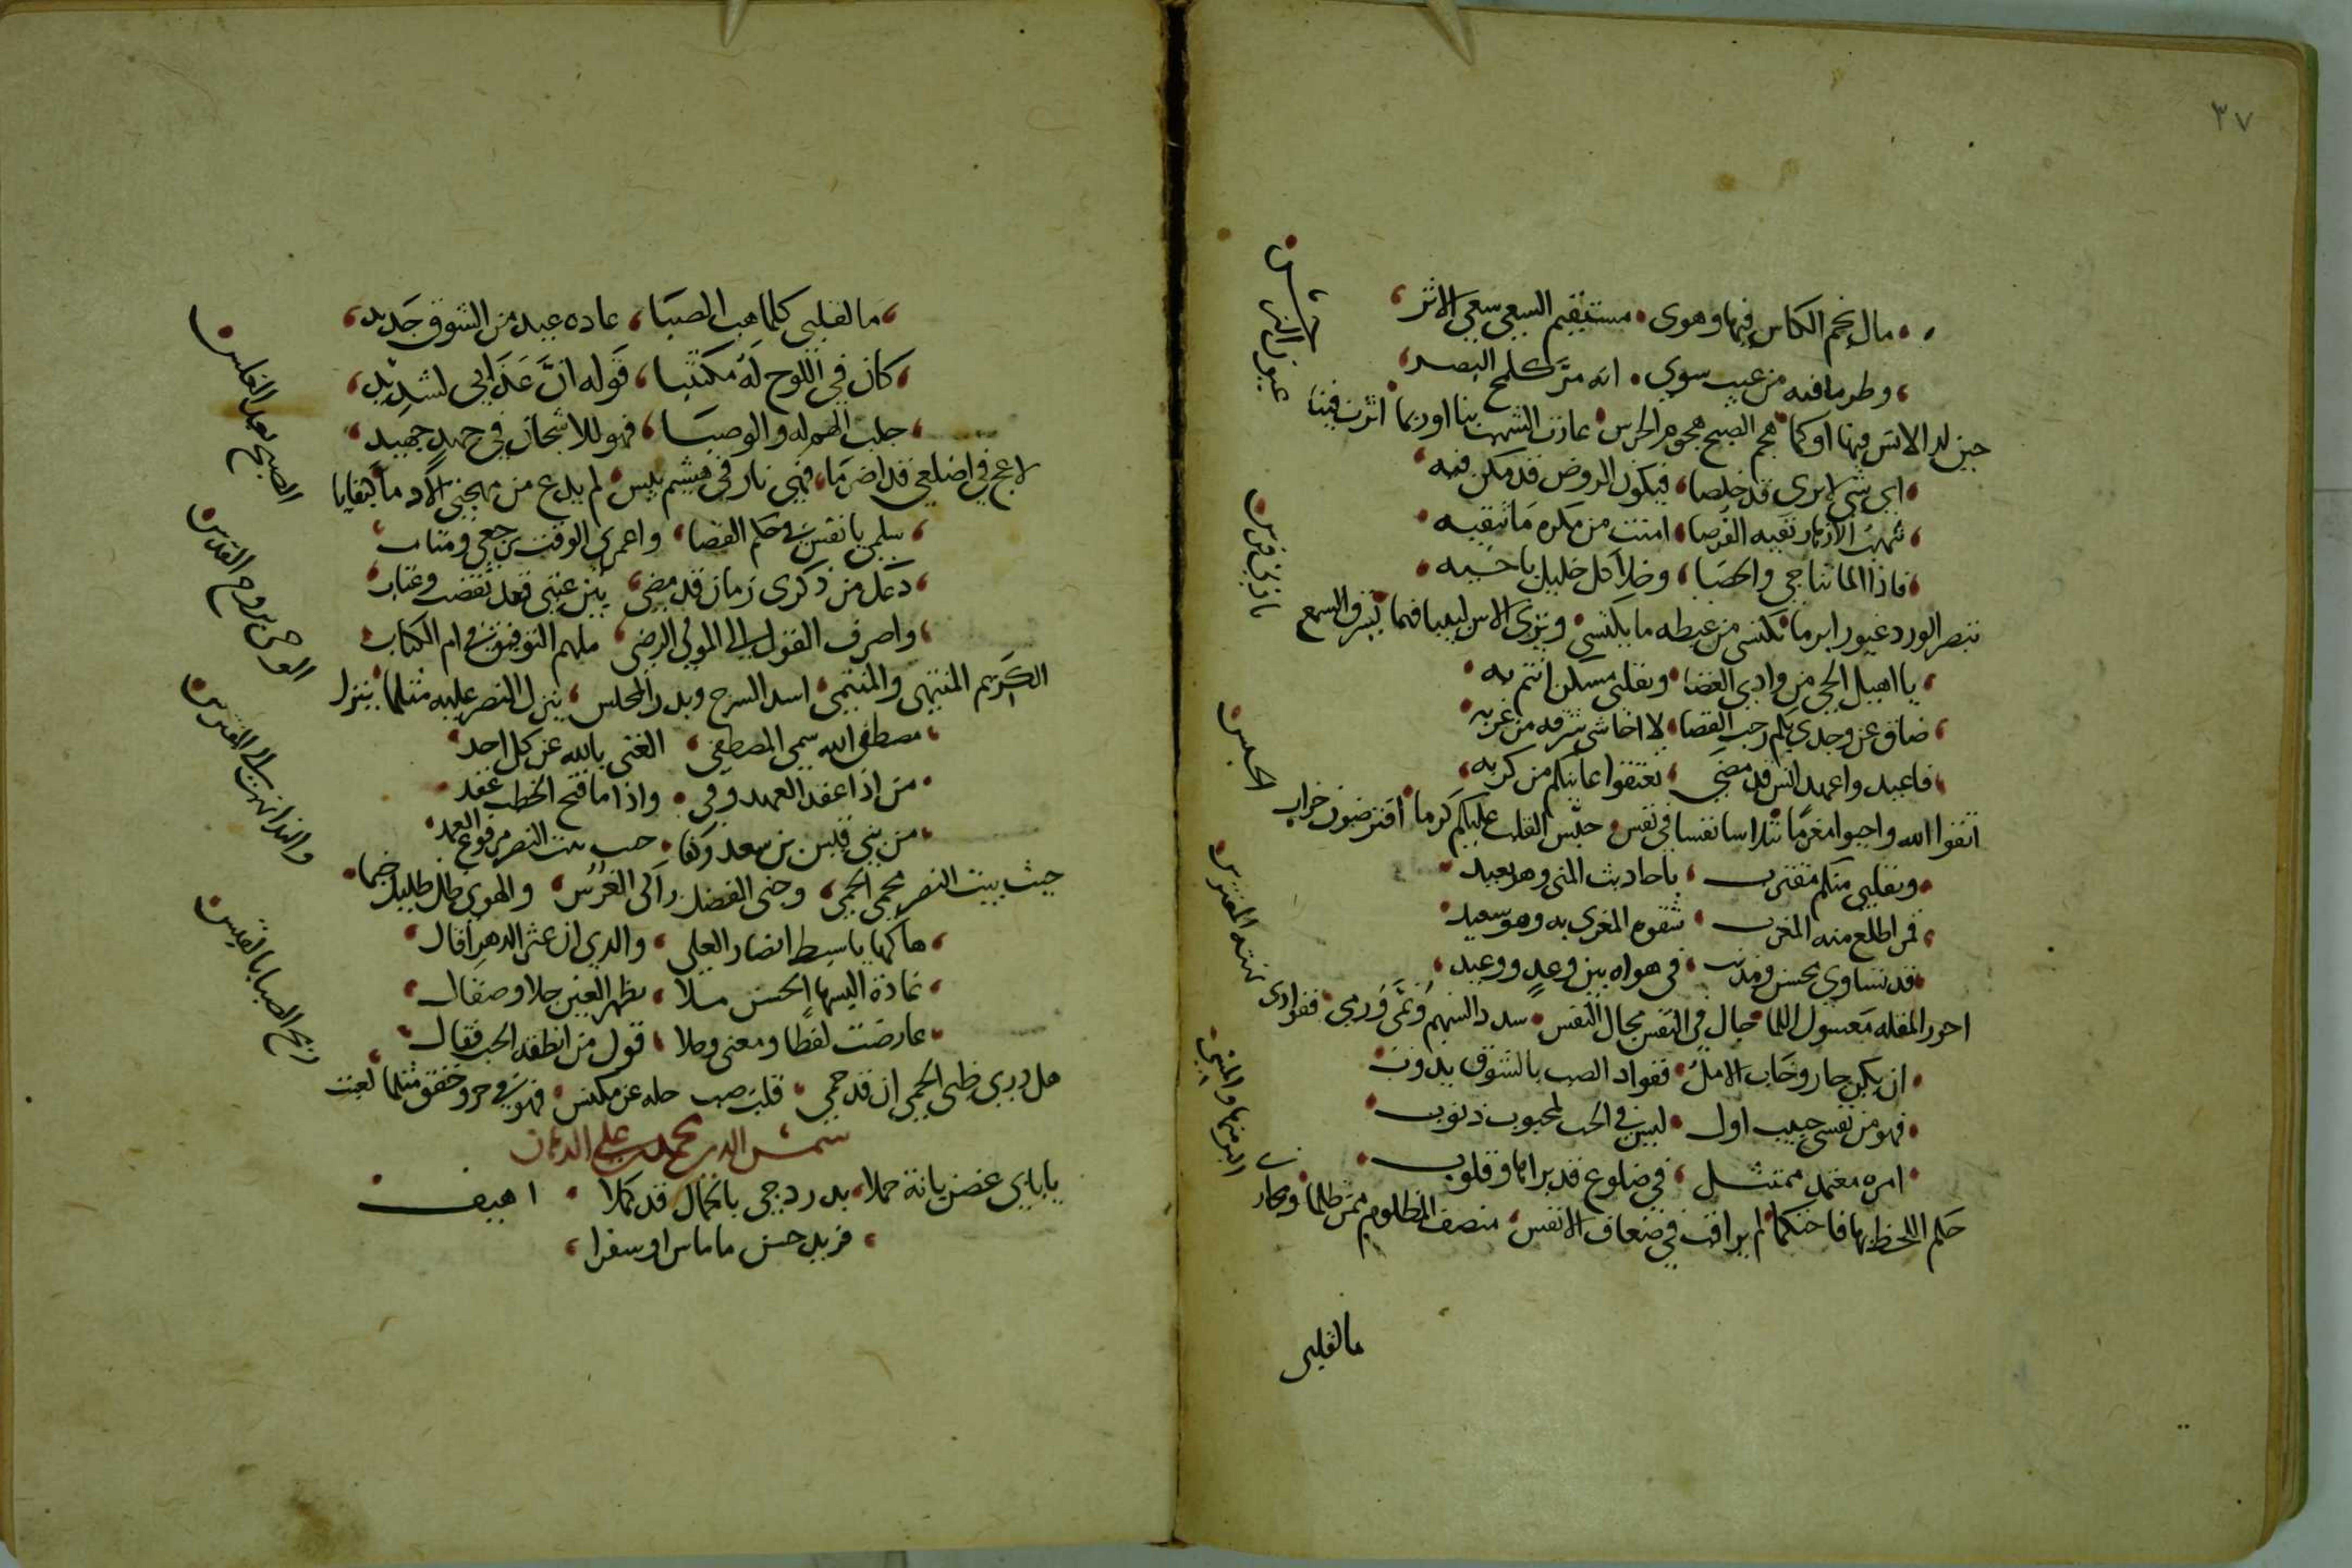 ٣٧
مال نجم الكاس فيها وهوى مستقيم السعي سعى الاثر
وطر ما فيه من عيب سوى انه مر كلمح البصر
حين لد الانس فيها او كما هجم الصبح هجوم الحرس غارت الشهب بنا او ربما اثرت فينا
عيون النرجس
اي شي لامرى قد خلصا فيكون الروض قد مكن فيه
تنهب الازهار فيه الفرصا امنت من مكره ما تتقيه
فاذا الما تناجى والحصا وخلا كل خليل باخيه
تبصر الورد غيورا برما يكتسي من غيظه ما يكتسي وترى الاس لبيبا فهما يسرق السمع
باذني فرس
يا اهيل الحي من وادي الغضا وبقلبي مسكن انتم به
ضاق عن وجدي بكم رحب الفضا لا اخاشي شرقه من غربه
فاعيدوا عهد انس قد مضى تعتقوا عانيكم من كربه
اتقوا الله واحيوا مغرما يتلاسا نفسا في نفس حبس القلب عليكم كرما افترضون خراب
الحبس
وبقلبي منكم مقترب باحاديث المنى وهو بعيد
قمر اطلع منه المغرب شقوة المغرى به وهو سعيد
قد تساوى محسن ومذنب في هواه بين وعد ووعيد
احور المقله معسول اللما جال في النفس مجال النفس سدد السهم وسمى ورمى ففوادي
نهبة المفترس
ان يكن جار وخاب الامل ففواد الصب بالشوق يذوب
فهو من نفسي حبيب اول ليس في الحب لمحبوب ذنوب
امره معتمد ممتثل في ضلوع قد براها وقلوب
حكم اللحظ بها فاحتكما لم يراقب في ضعاف الانفس منصف المظلوم ممن ظلما ومجازي
البر منها والمسي
مالقلبي
ما لقلبي كلما هب الصبا عاده عيد من الشوق جديد
كان في اللوح له مكتتبا قوله ان عذابي لشديد
جلب الهم له والوصبا فهو للاشجان في جهد جهيد
لاعج في اضلعي قد اضرما فهي نار في هشيم يبس لم يدع من مهجتي الا دما كبقايا
الصبح بعد الغلس
سلمي يا نفس في حكم القضا واعمري الوقت برجعى ومتاب
دعك من ذكرى زمان قد مضى بين عتبى قد تقضت وعتاب
واصرف القول الى المولى الرضى ملهم التوفيق في ام الكتاب
الكريم المنتهى والمنتمى اسد السرج وبدر المجلس ينزل النصر عليه مثلما ينزل
الوحي بروح القدس
مصطفى الله سمي المصطفى الغني بالله عن كل احد
من اذا عقد العهد وفى واذا ما فتح الخطب عقد
من بني قيس بن سعد وكفا حيث بيت النصر مرفوع العمد
حيث بيت النصر محمي الحمى وجنى الفضل زاكي الغرس والهوى ظل ظليل خيما
والندا نهب الى المغترس
هاكها يا سبط انصار العلى والذي ان عثر الدهر اقال
غادة البسها الحسن ملا تبهر العين جلا وصقال
عارضت لفظا ومعنى وحلا قول من انطقه الحب فقال
هل درى ظبي الحمى ان قد حمى قلب صب حله عن مكنس فهو في حر وخفق مثلما لعبت
ريح الصبا بالقبس
شمس الدين محمد بن علي الدهان
يا بابي غصن بانة حملا بدر دجى بالجمال قد كملا اهيف
فريد حسن ما ماس او سفرا